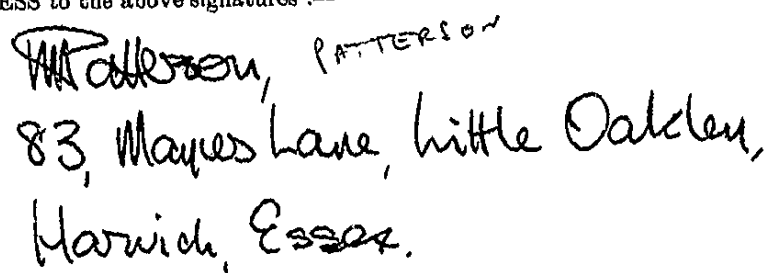 ESS to the above signatures :—
MPatterson, PATTERSON
83, Mayes Lane, Little Oakley,
Harwich, Essex.